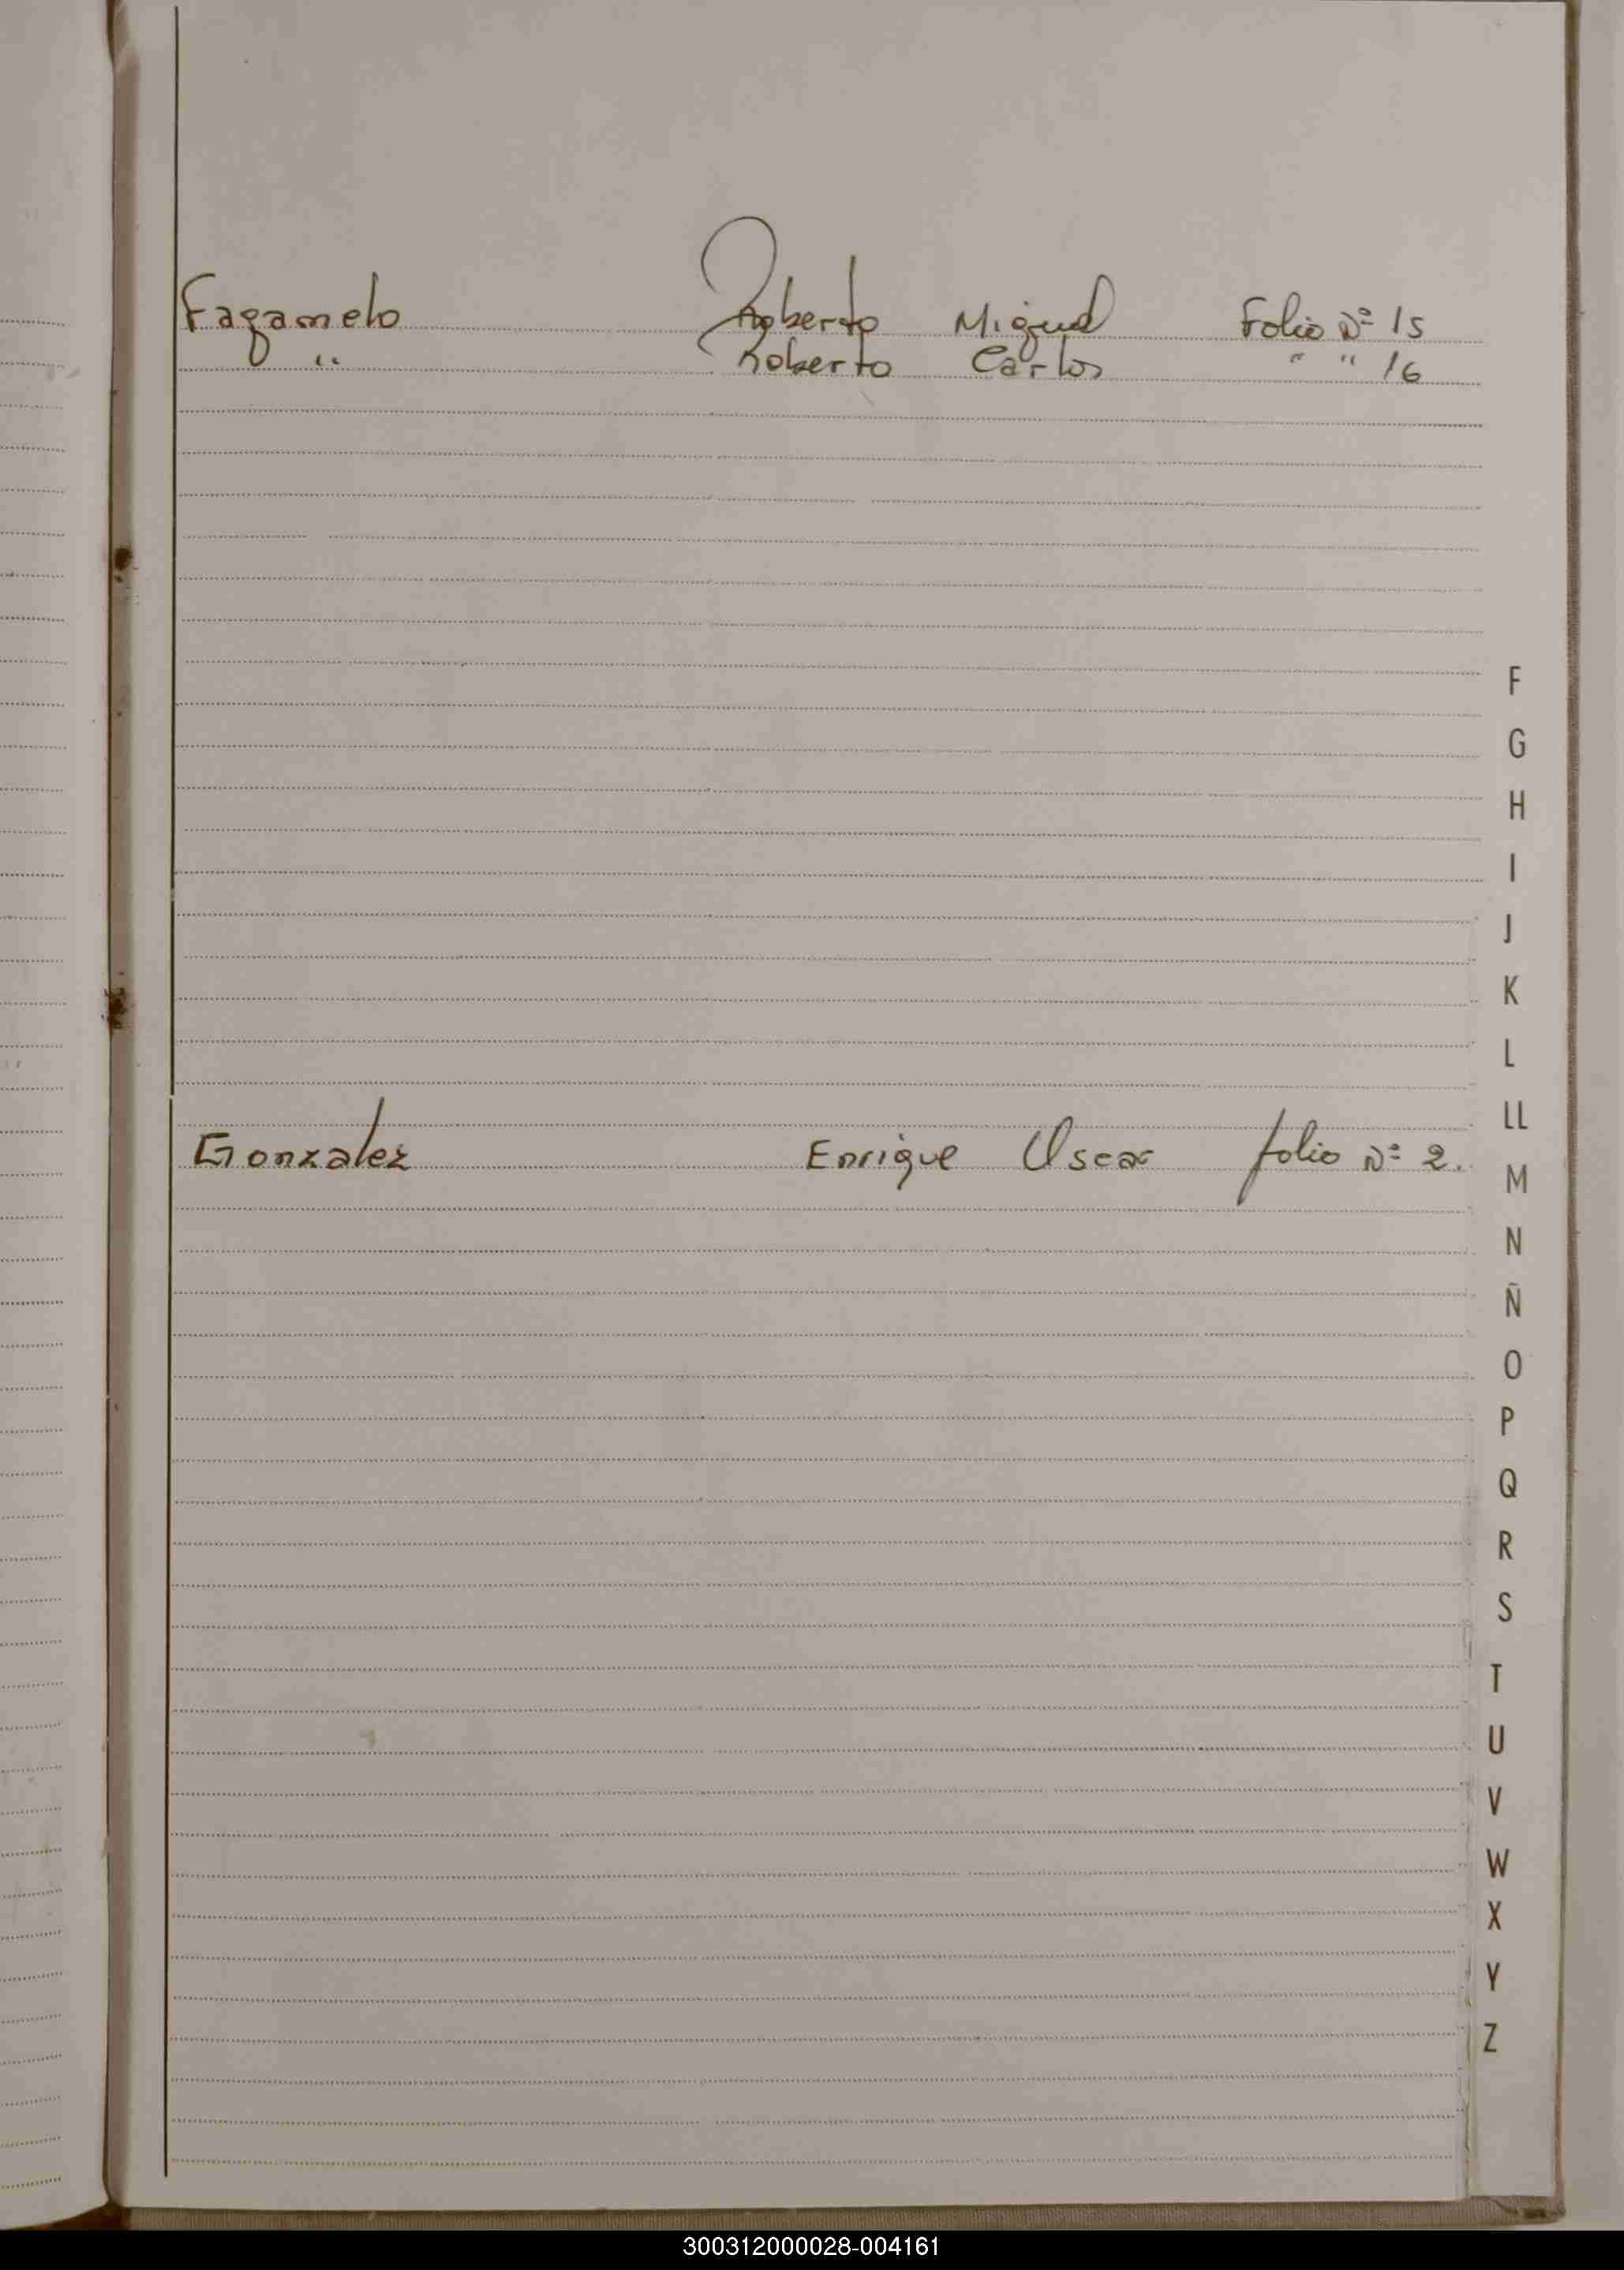 Fagamelo Roberto Miguel Folio Nº 15
" Roberto Carlos " " 16
F
G
H
I
J
K
L
LL
Gonzalez Enrique Oscar folio Nº 2.
M
N
Ñ
O
P
Q
R
S
T
U
V
W
X
Y
Z
300312000028-004161